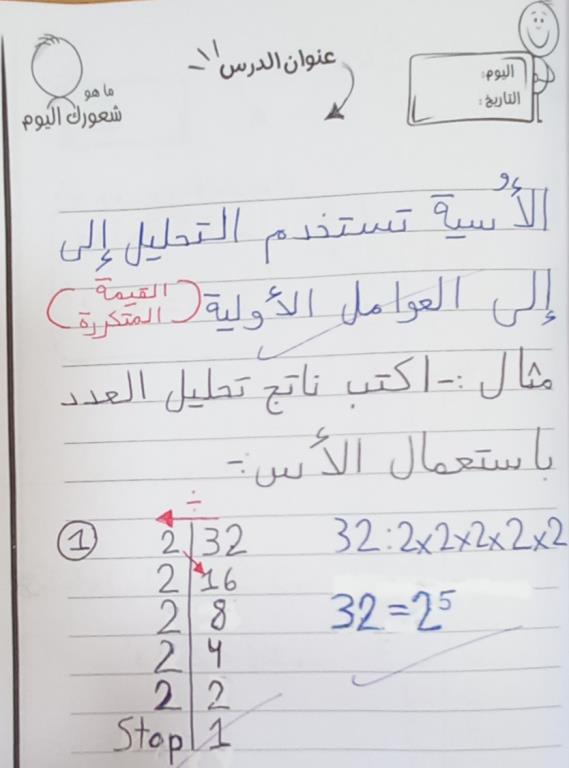 عنوان الدرس
اليوم:
التاريخ:
ما هو
شعورك اليوم
الأُسية تستخدم التحليل إلى
إلى العوامل الأولية (القيمة المتكررة)
مثال :- اكتب ناتج تحليل العدد
باستعمال الأس :-
÷
1 2 | 32 32:2×2×2×2×2
2 | 16
2 | 8 32=2⁵
2 | 4
2 | 2
Stop | 1